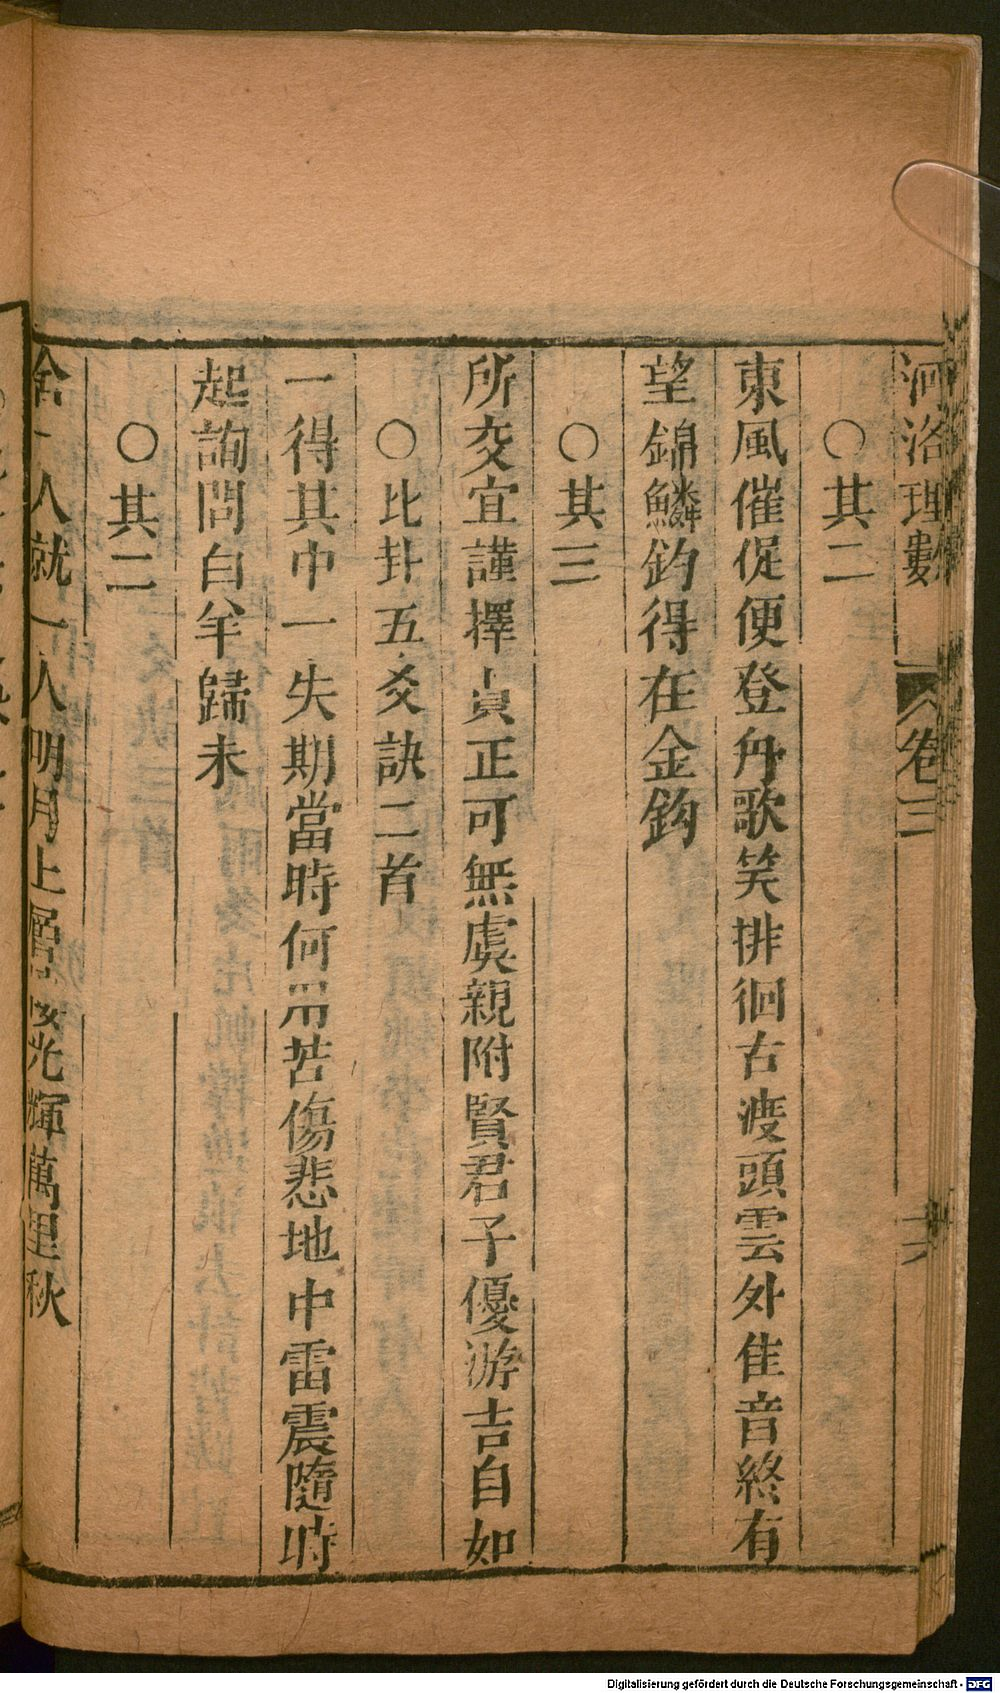 河洛理數 卷三 六
○其二
東風催促便登舟歌笑排徊古渡頭雲外佳音終有
望錦鱗釣得在金鈎
○其三
所交宜謹擇貞正可無虞親附賢君子優游吉自如
○比卦五爻訣二首
一得其中一失期當時何用苦傷悲地中雷震隨時
起詢問白羊歸未
○其二
人就一人明月上層光輝萬里秋
Digitalisierung gefördert durch die Deutsche Forschungsgemeinschaft - DFG